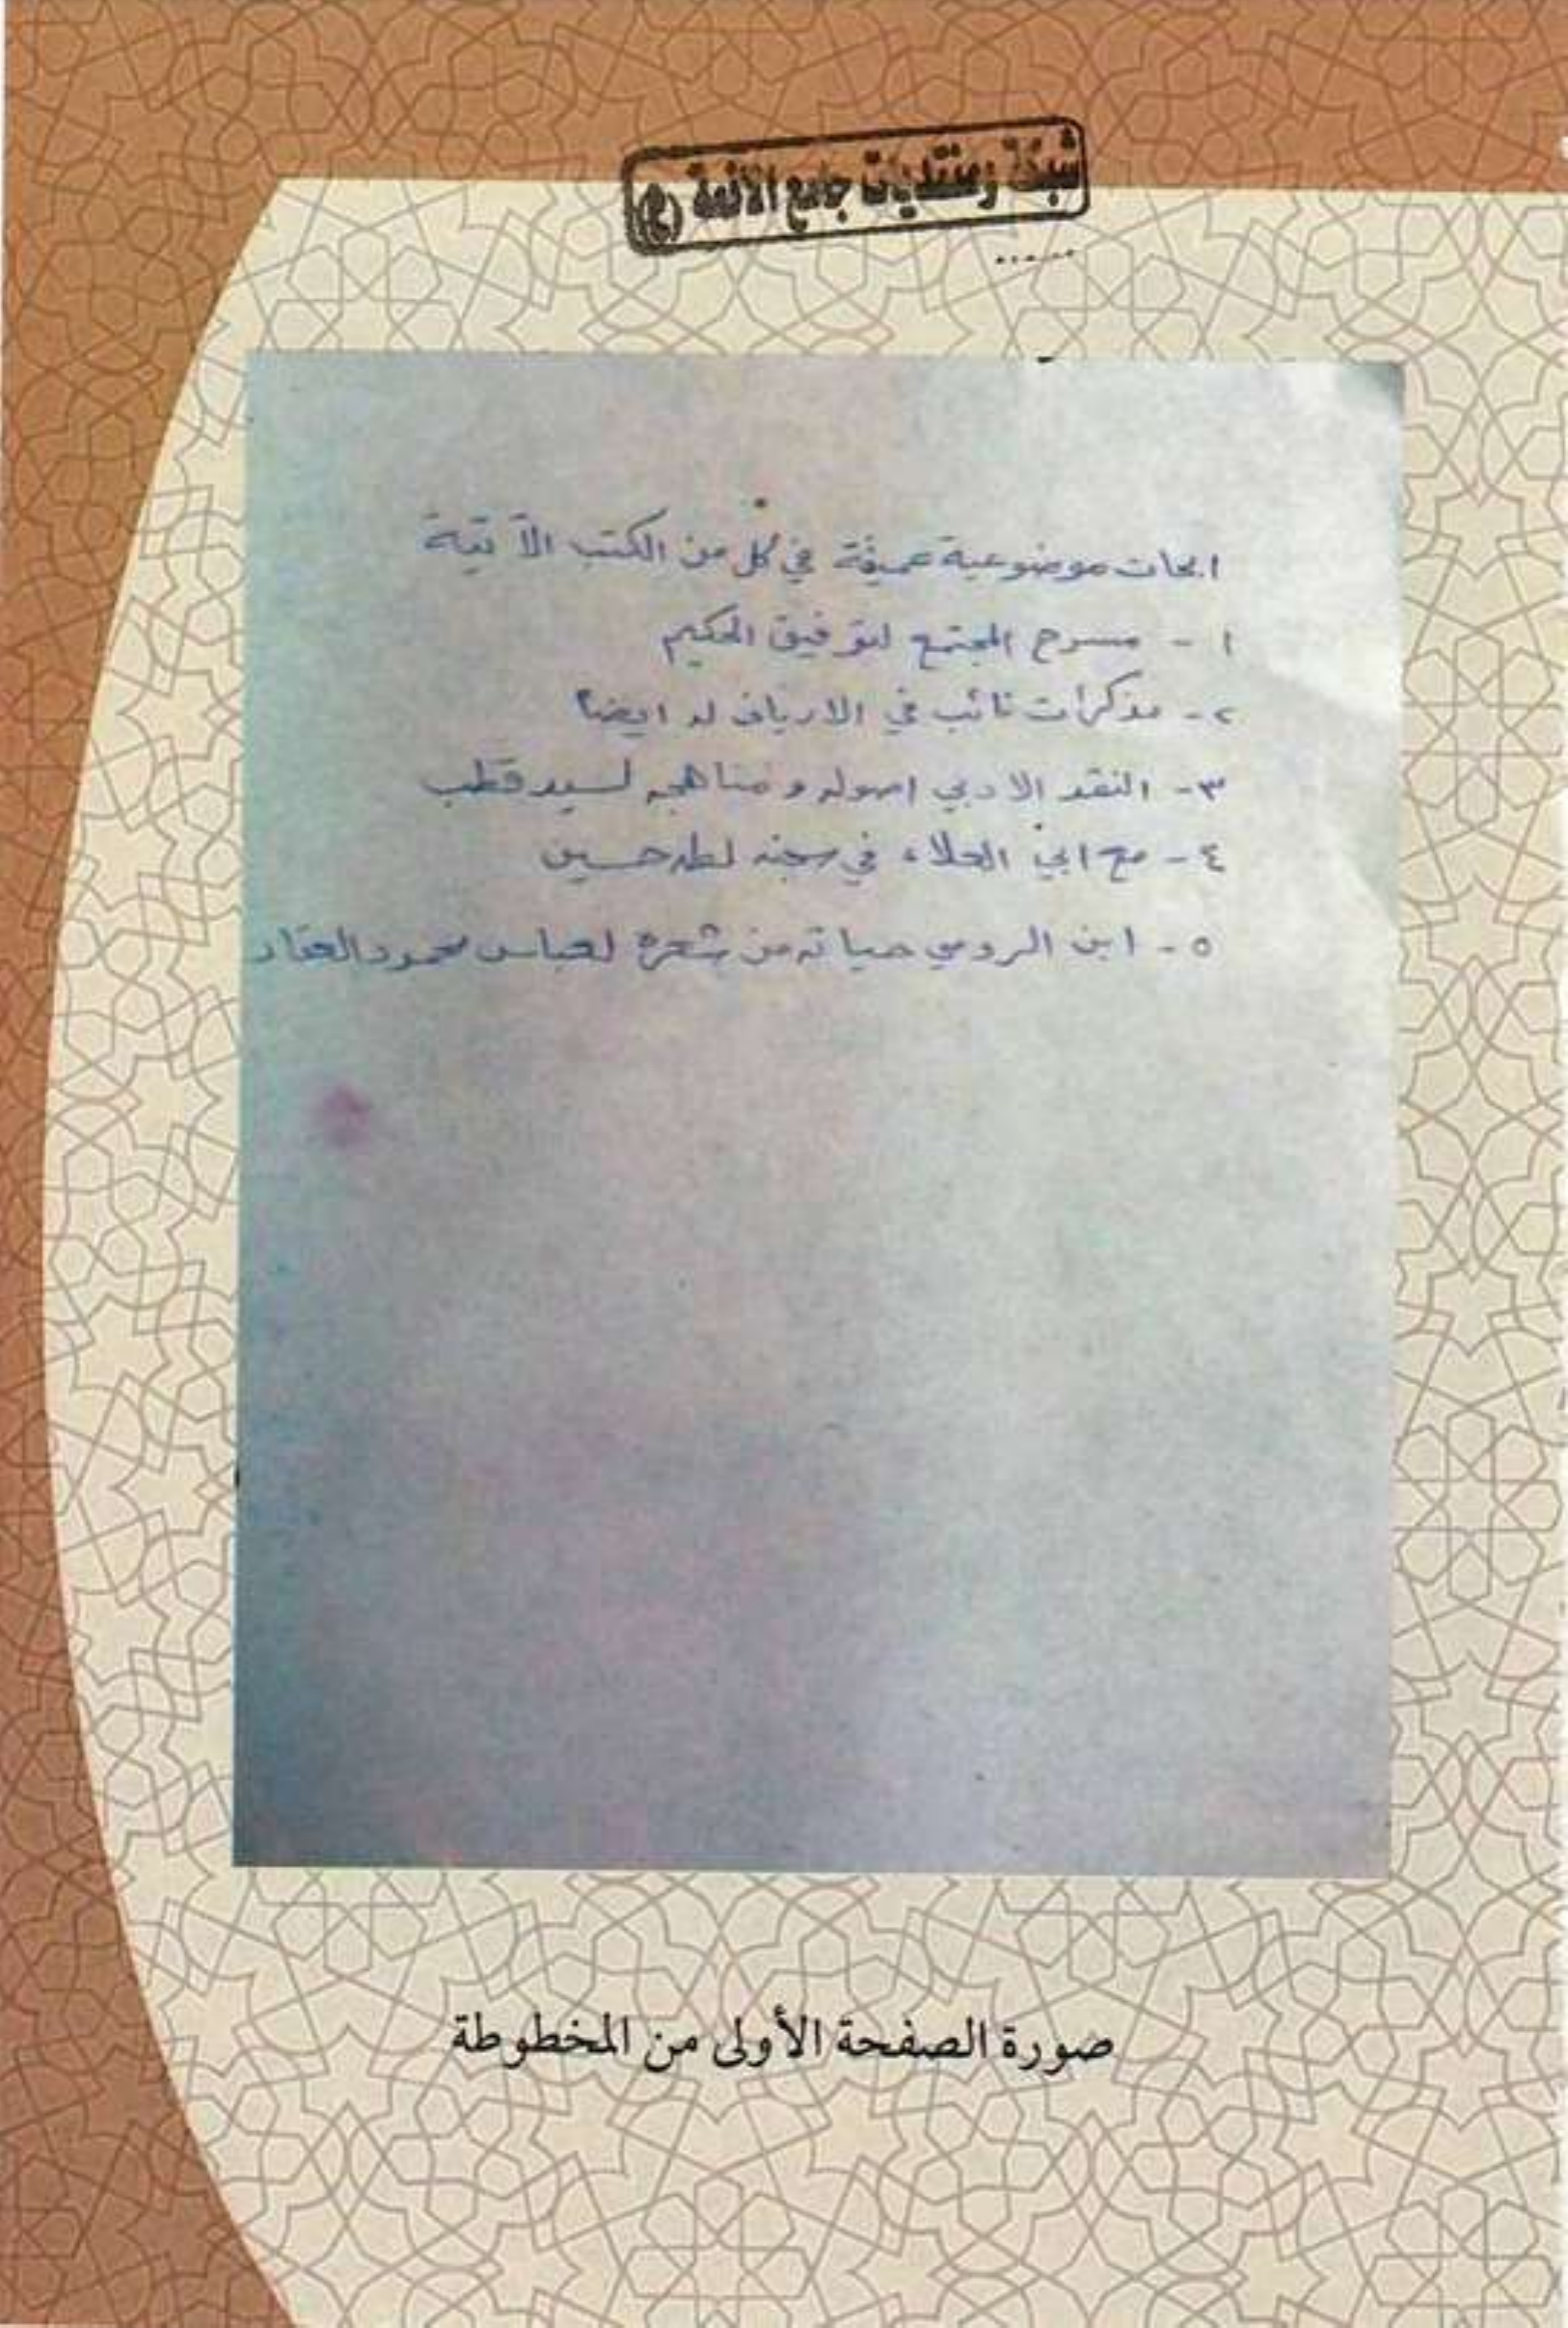 شبكة ومنتديات جامع الائمة (ع)
ابحاث موضوعية عميقة في كل من الكتب الآتية
١ - مسرح المجتمع لتوفيق الحكيم
٢ - مذكرات نائب في الارياف له ايضاً
٣ - النقد الادبي اصوله و مناهجه لسيد قطب
٤ - مع ابي العلاء في سجنه لطه حسين
٥ - ابن الرومي حياته من شعره لعباس محمود العقاد
صورة الصفحة الأولى من المخطوطة